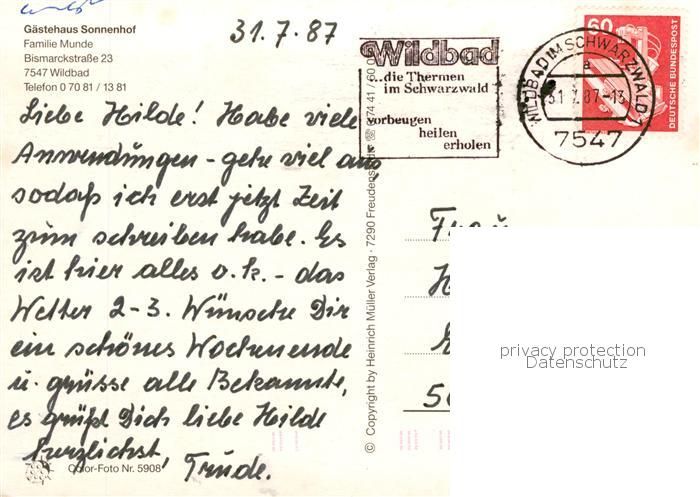 Gästehaus Sonnenhof
Familie Munde
Bismarckstraße 23
7547 Wildbad
Telefon 0 70 81 / 13 81
31.7.87
Liebe Hilde! Habe viele
Anwendungen - gehe viel aus,
sodaß ich erst jetzt Zeit
zum schreiben habe. Es
ist hier alles o.k. - das
Wetter 2-3. Wünsche Dir
ein schönes Wochenende
u. grüsse alle Bekannte,
es grüßt Dich liebe Hilde
herzlichst,
Trude.
Color-Foto Nr. 5908
© Copyright by Heinrich Müller Verlag · 7290 Freudenstadt
Wildbad
...die Thermen
im Schwarzwald
vorbeugen
heilen
erholen
WILDBAD IM SCHWARZWALD 1
a
31.7.87-13
7547
60
DEUTSCHE BUNDESPOST
Frau
privacy protection
Datenschutz